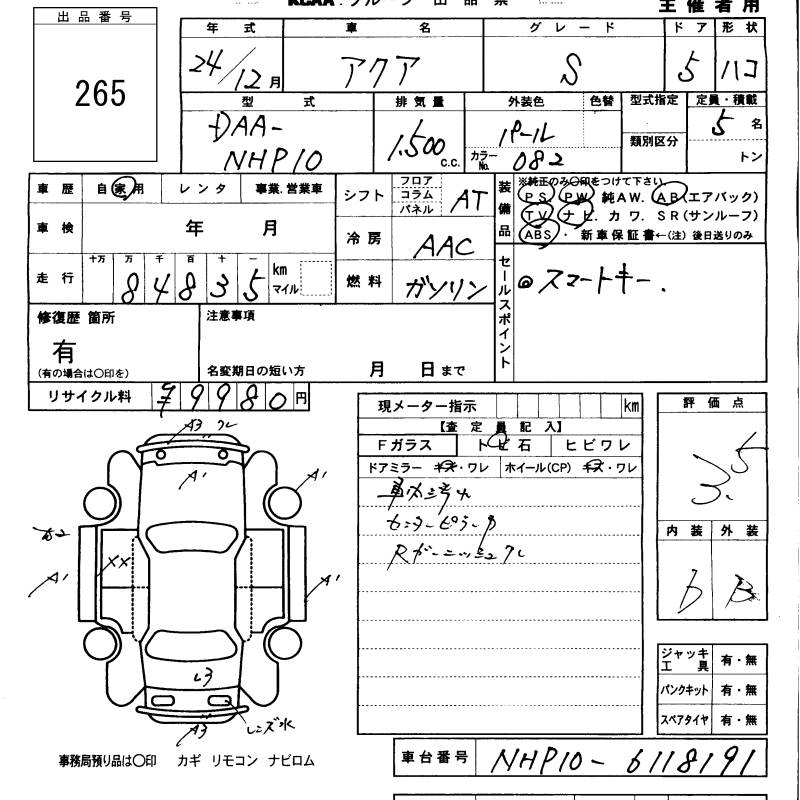 主催者用
出品番号
265
年式 車名 グレード ドア 形状
24/12月 アクア S 5 ハコ
型式 排気量 外装色 色替 型式指定 定員・積載
DAA-NHP10 1,500 c.c. パール
カラーNo. 082
類別区分
5名
トン
車歴 自家用 レンタ 事業.営業車
車検 年 月
走行 十万 万 千 百 十 一 km マイル
84835
シフト フロア コラム パネル AT
冷房 AAC
燃料 ガソリン
装備品
※純正のみ〇印をつけて下さい
PS. PW. 純AW. AB(エアバック)
TV. ナビ. カワ. SR(サンルーフ)
ABS・ 新車保証書←(注) 後日送りのみ
セールスポイント
◎スマートキー.
修復歴 箇所
有
(有の場合は〇印を)
注意事項
名変期日の短い方 月 日まで
リサイクル料 ¥9980円
現メーター指示 km
【査定員記入】
Fガラス トビ石 ヒビワレ
ドアミラー キズ・ワレ ホイール(CP) キズ・ワレ
センターピラーサ
Rガーニッシュワレ
評価点
3.5
内装 外装
b B
A3 ワレ
A1
A1
A1
XX
A2
A1
A1
L3
レンズ水
A3
ジャッキ工具 有・無
パンクキット 有・無
スペアタイヤ 有・無
事務局預り品は〇印 カギ リモコン ナビロム
車台番号 NHP10-6118191